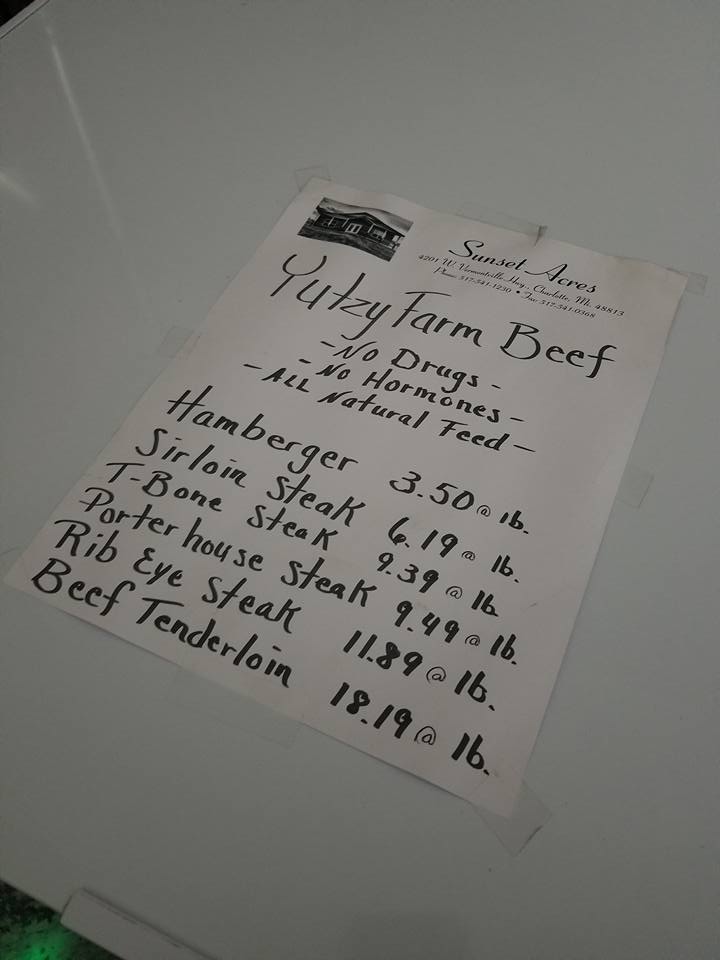 Sunset Acres
4201 W. Vermontville Hwy., Charlotte, Mi. 48813
Phone 517-541-1230 • Fax 517-541-0368
Yutzy Farm Beef
-No Drugs-
-No Hormones-
-ALL Natural Feed-
Hamberger 3.50 @ lb.
Sirloin Steak 6.19 @ lb.
T-Bone Steak 9.39 @ lb
Porterhouse Steak 9.49 @ lb.
Rib Eye Steak 11.89 @ lb.
Beef Tenderloin 18.19 @ lb.